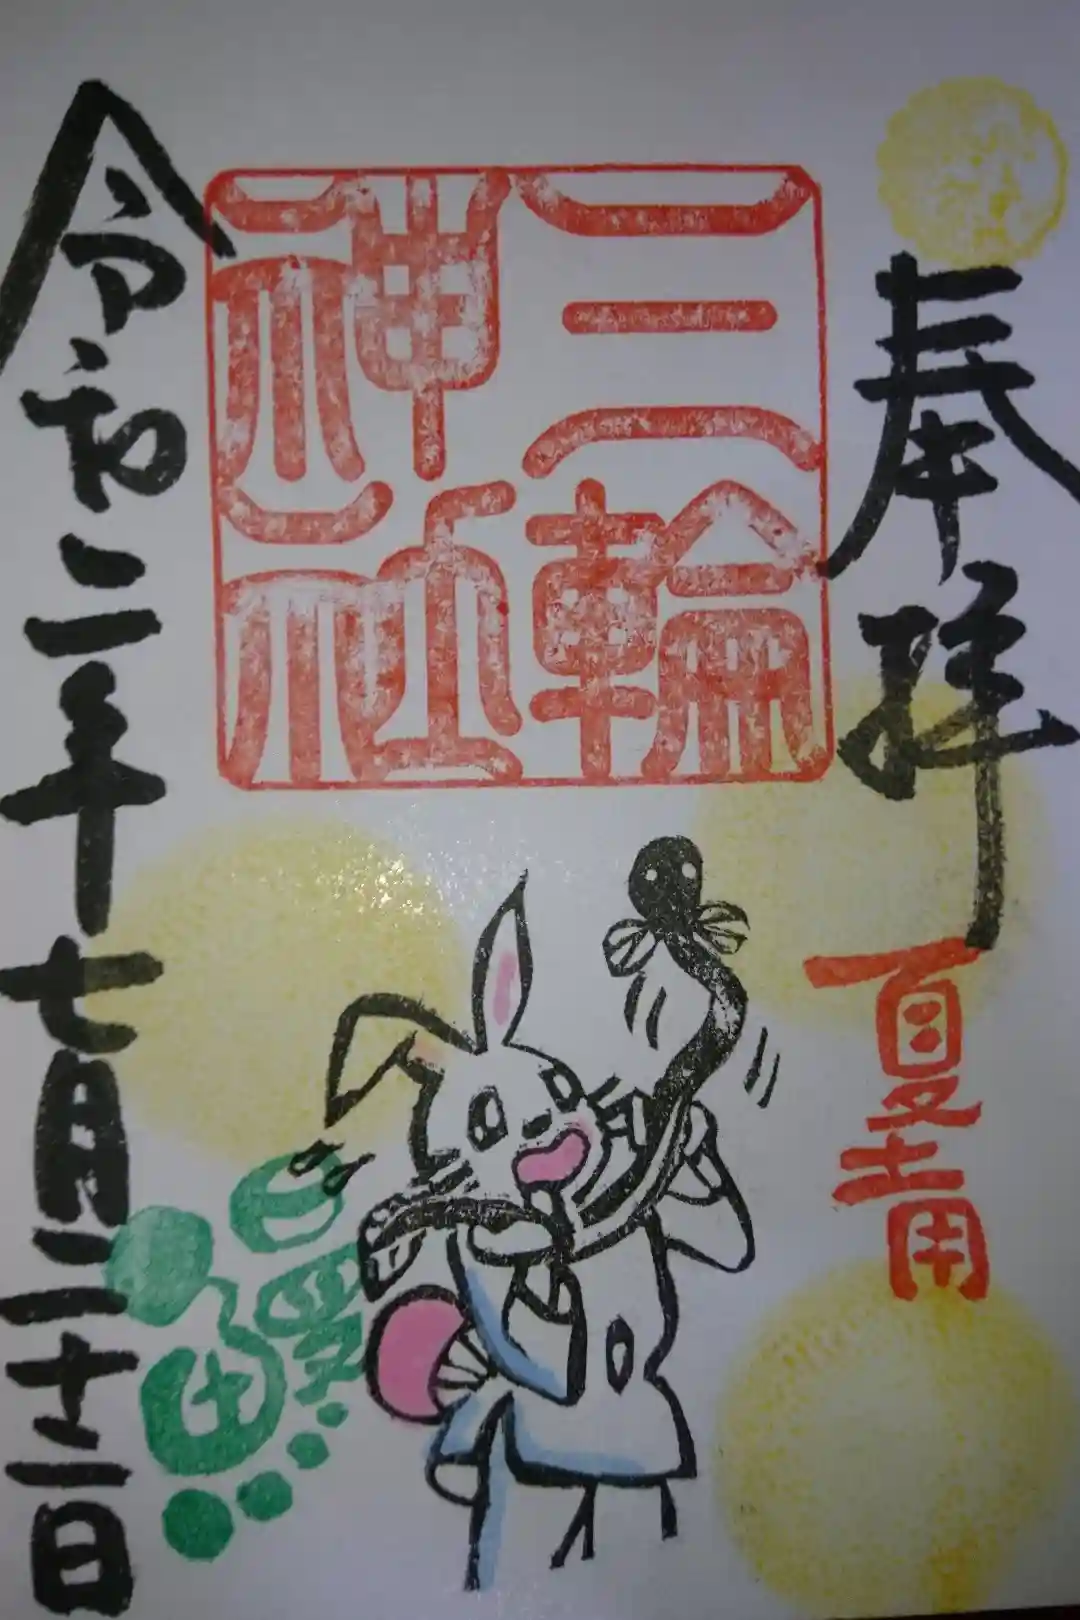 奉拝
夏土用
三輪
神社
令和二年七月二十一日